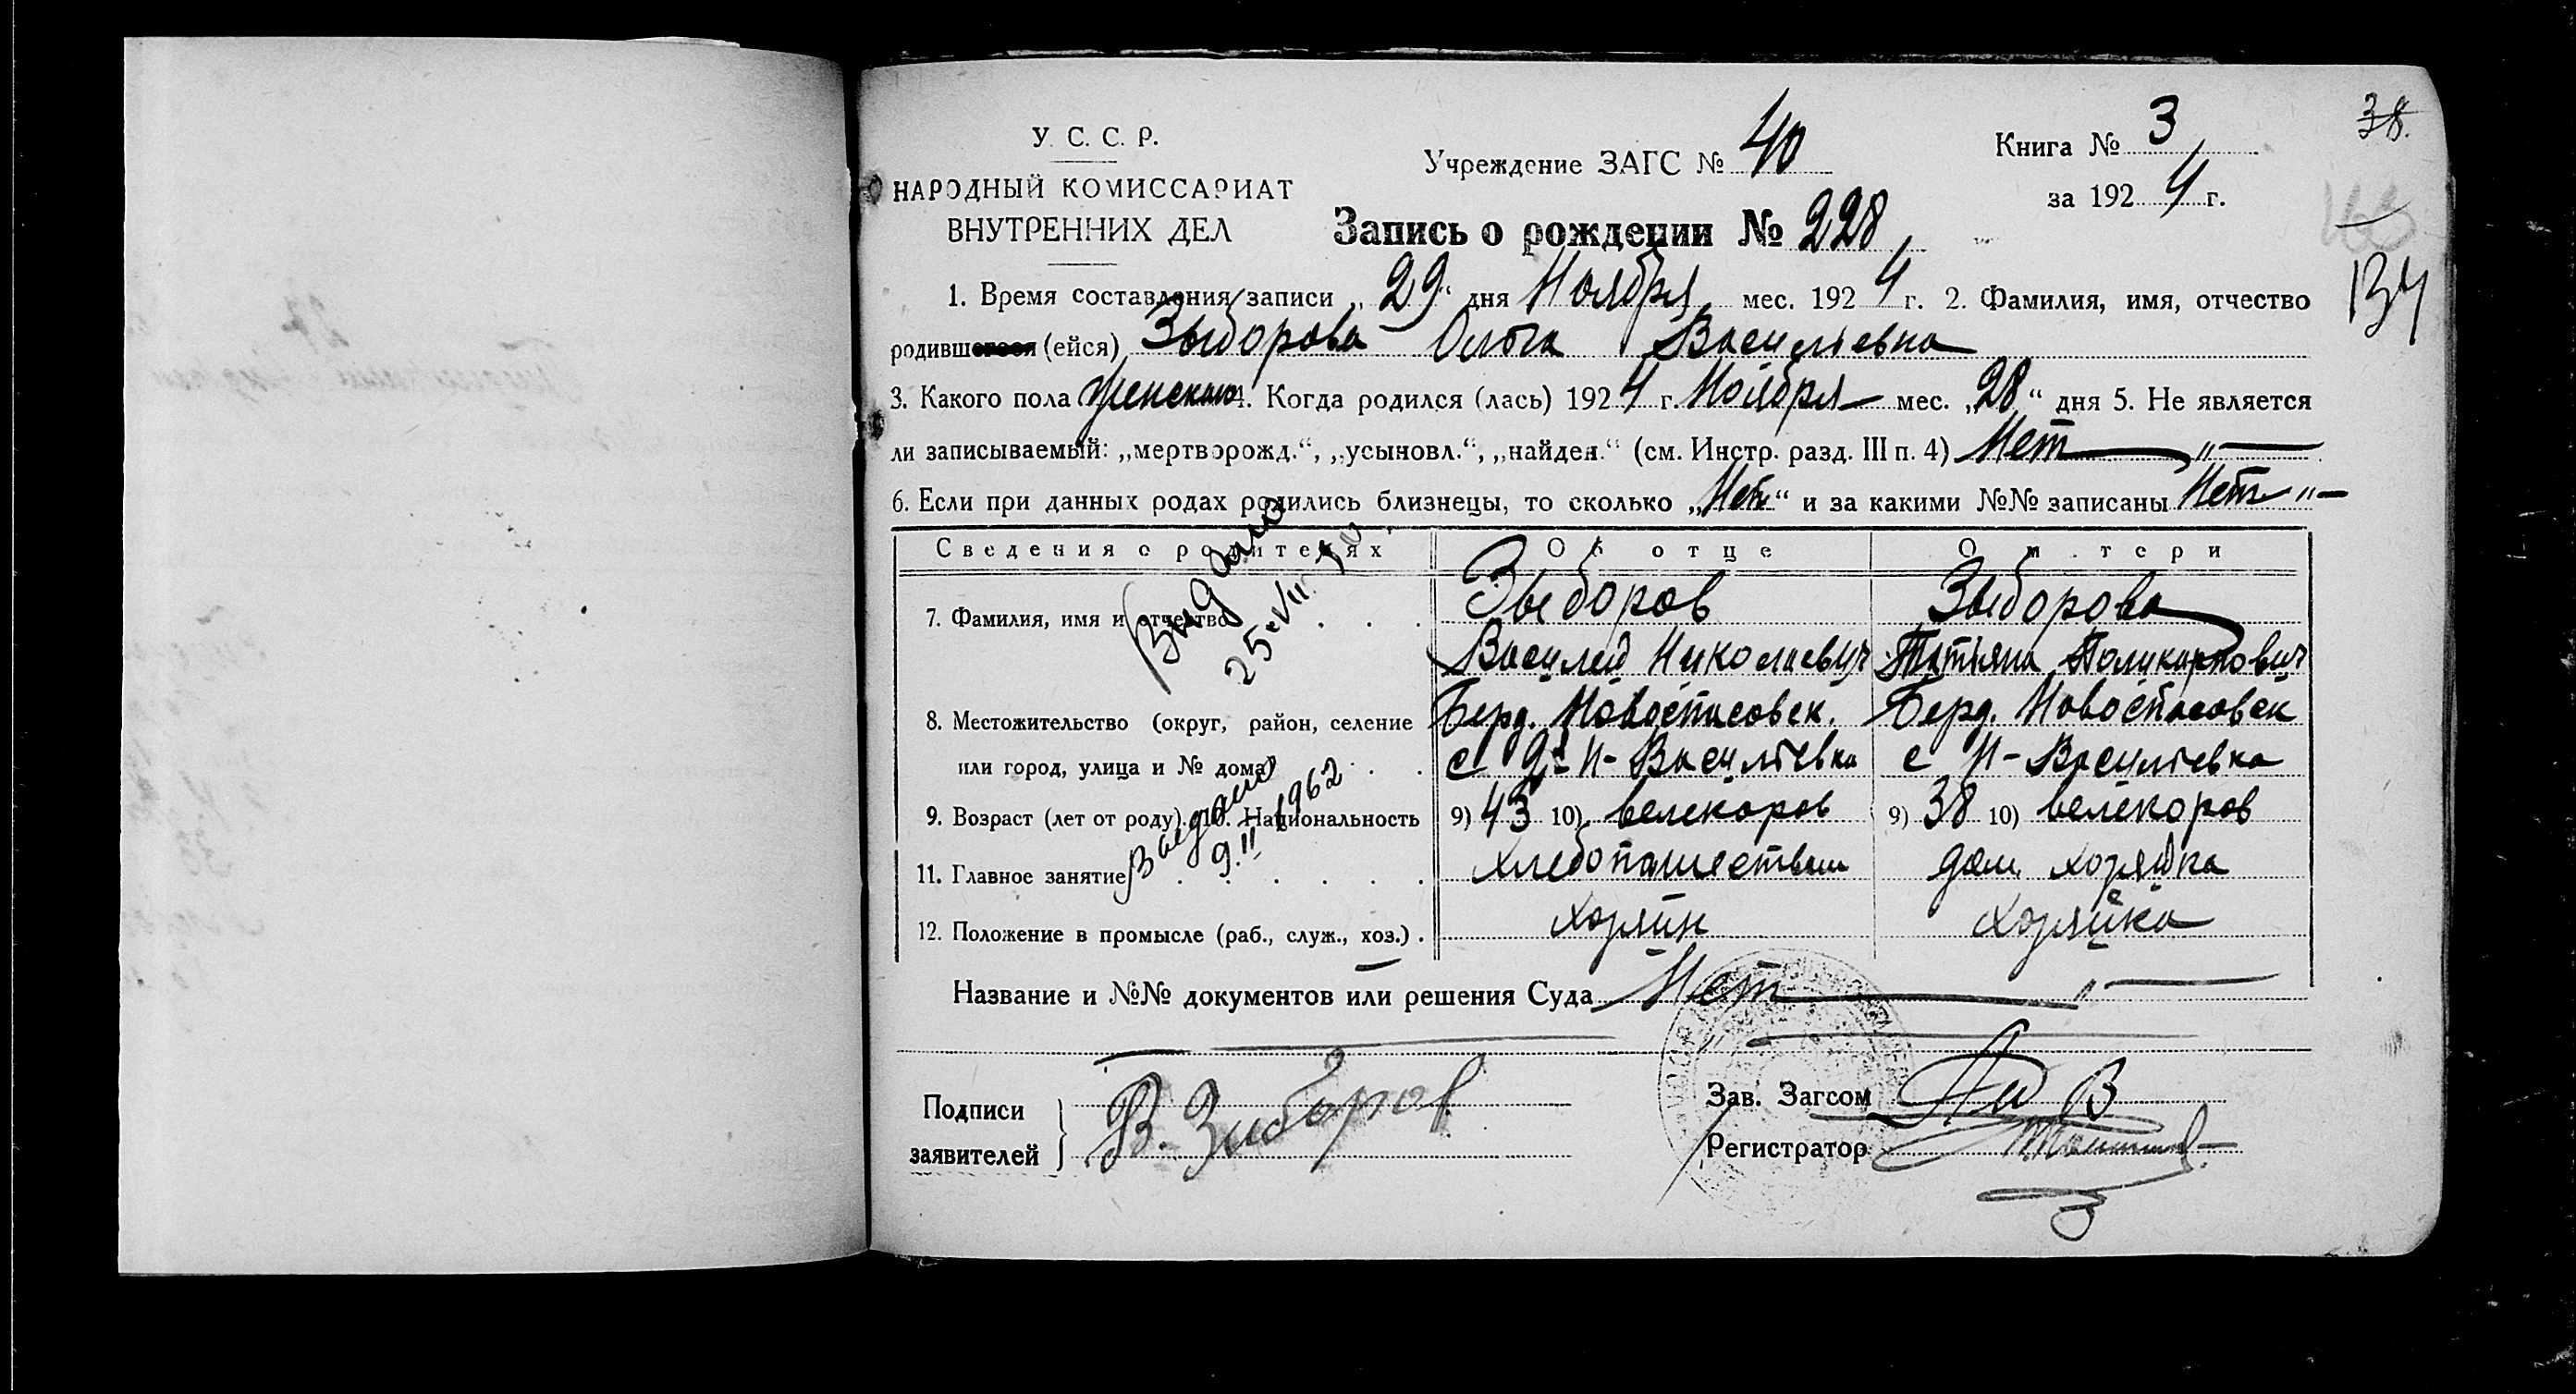 38.
У. С. С. Р.
НАРОДНЫЙ КОМИССАРИАТ
ВНУТРЕННИХ ДЕЛ
Учреждение ЗАГС № 40
Книга № 3
за 1924 г.
134
Запись о рождении № 228
1. Время составления записи „29“ дня Ноября мес. 1924 г. 2. Фамилия, имя, отчество
родившегося (ейся) Зыборова Ольга Васильевна
3. Какого пола женского 4. Когда родился (лась) 1924 г. Ноября мес. „28“ дня 5. Не является
ли записываемый: „мертворожд.“, „усыновл.“, „найден.“ (см. Инстр. разд. III п. 4) Нет — „ —
6. Если при данных родах родились близнецы, то сколько „Нет“ и за какими №№ записаны Нет „ —
Сведения о родителях Об отце О матери
7. Фамилия, имя и отчество . . . Зыборов Зыборова
Василий Николаевич Татьяна Поликарпович
8. Местожительство (округ, район, селение Берд. Новоспасовск. Берд. Новоспасовск
или город, улица и № дома) . . с 2е Н-Васильевка с Н-Васильевка
9. Возраст (лет от роду). 10. Национальность 9) 43 10) велекоров 9) 38 10) велекоров
11. Главное занятие . . . . . . хлебопашеством дом. хозяйка
12. Положение в промысле (раб., служ., хоз.) . хозяин хозяйка
Видано
25-VII
Выдано
9.II 1962
Название и №№ документов или решения Суда Нет — „ —
Подписи
заявителей
В. Зиборов
Зав. Загсом
Регистратор